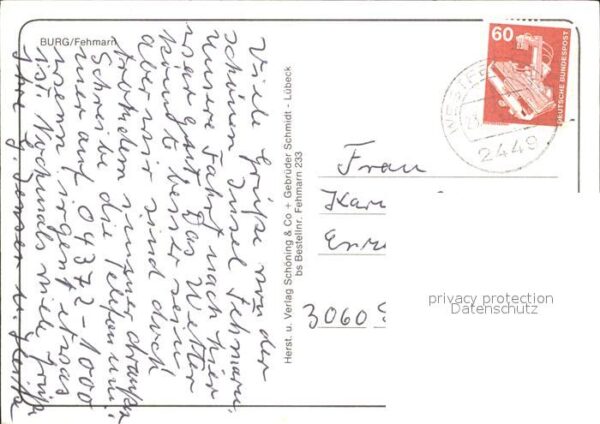 BURG/Fehmarn
Viele Grüße von der
schönen Insel Fehmarn,
unsere Fahrt nach hier
war gut. Das Wetter
könnte besser sein,
aber wir sind doch
trotzdem immer draußen
Schreibe die Telefonnum-
mer auf 04372-1000
wenn irgent etwas
ist. Nochmals viele Grüße
Herst. u. Verlag Schöning & Co + Gebrüder Schmidt - Lübeck
bs Bestellnr. Fehmarn 233
60
DEUTSCHE BUNDESPOST
2449
Frau
3060
privacy protection
Datenschutz